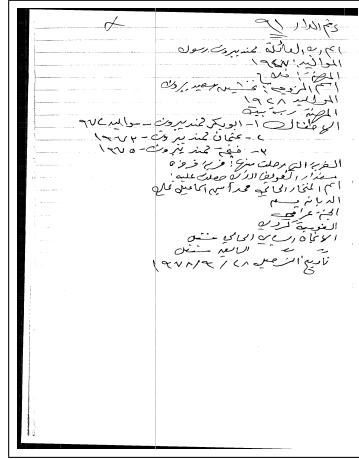 رقم الدار ٩١
اسم رب العائلة حمد بيروت رسول
المواليد: ١٩٤٧
المهنة: فلاح
اسم الزوجة: سعيد بيروت
المواليد ١٩٢٨
المهنة ربة بيت
الاطفال ١- ابوبكر حمد بيروت - مواليد ٩٧٢
٢- عثمان حمد بيروت - ١٩٧٣
٣- حمد بيروت - ١٩٧٥
القرية التي رحلت منها: قرية
مقدار التعويض الذي حصلت عليه:
اسم المختار الحالي محمد امين اسماعيل
الديانة مسلم
الجنسية عراقي
القومية كردي
الاتجاه السياسي الحالي مستقل
السابق مستقل
تاريخ الترحيل ٢٨ / ٩ / ١٩٧٨